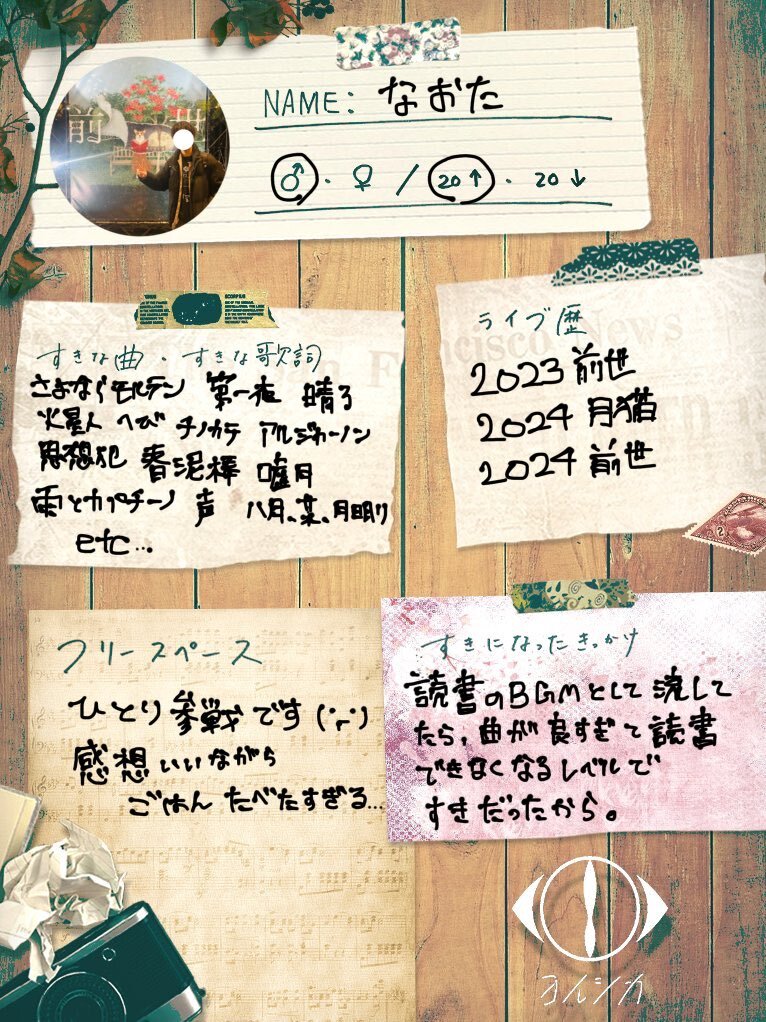 前世
NAME: なおた
♂・♀ / 20↑・20↓
すきな曲・すきな歌詞
さよならモルテン 第一夜 晴る
火星人 へび チノカテ アルジャーノン
思想犯 春泥棒 嘘月
雨とカプチーノ 声 八月、某、月明り
etc...
ライブ歴
2023 前世
2024 月と猫
2024 前世
フリースペース
ひとり参戦です
感想いいながら
ごはん たべたすぎる...
すきになったきっかけ
読書のBGMとして流して
たら、曲が良すぎて読書
できなくなるレベルで
すきだったから。
ヨルシカ